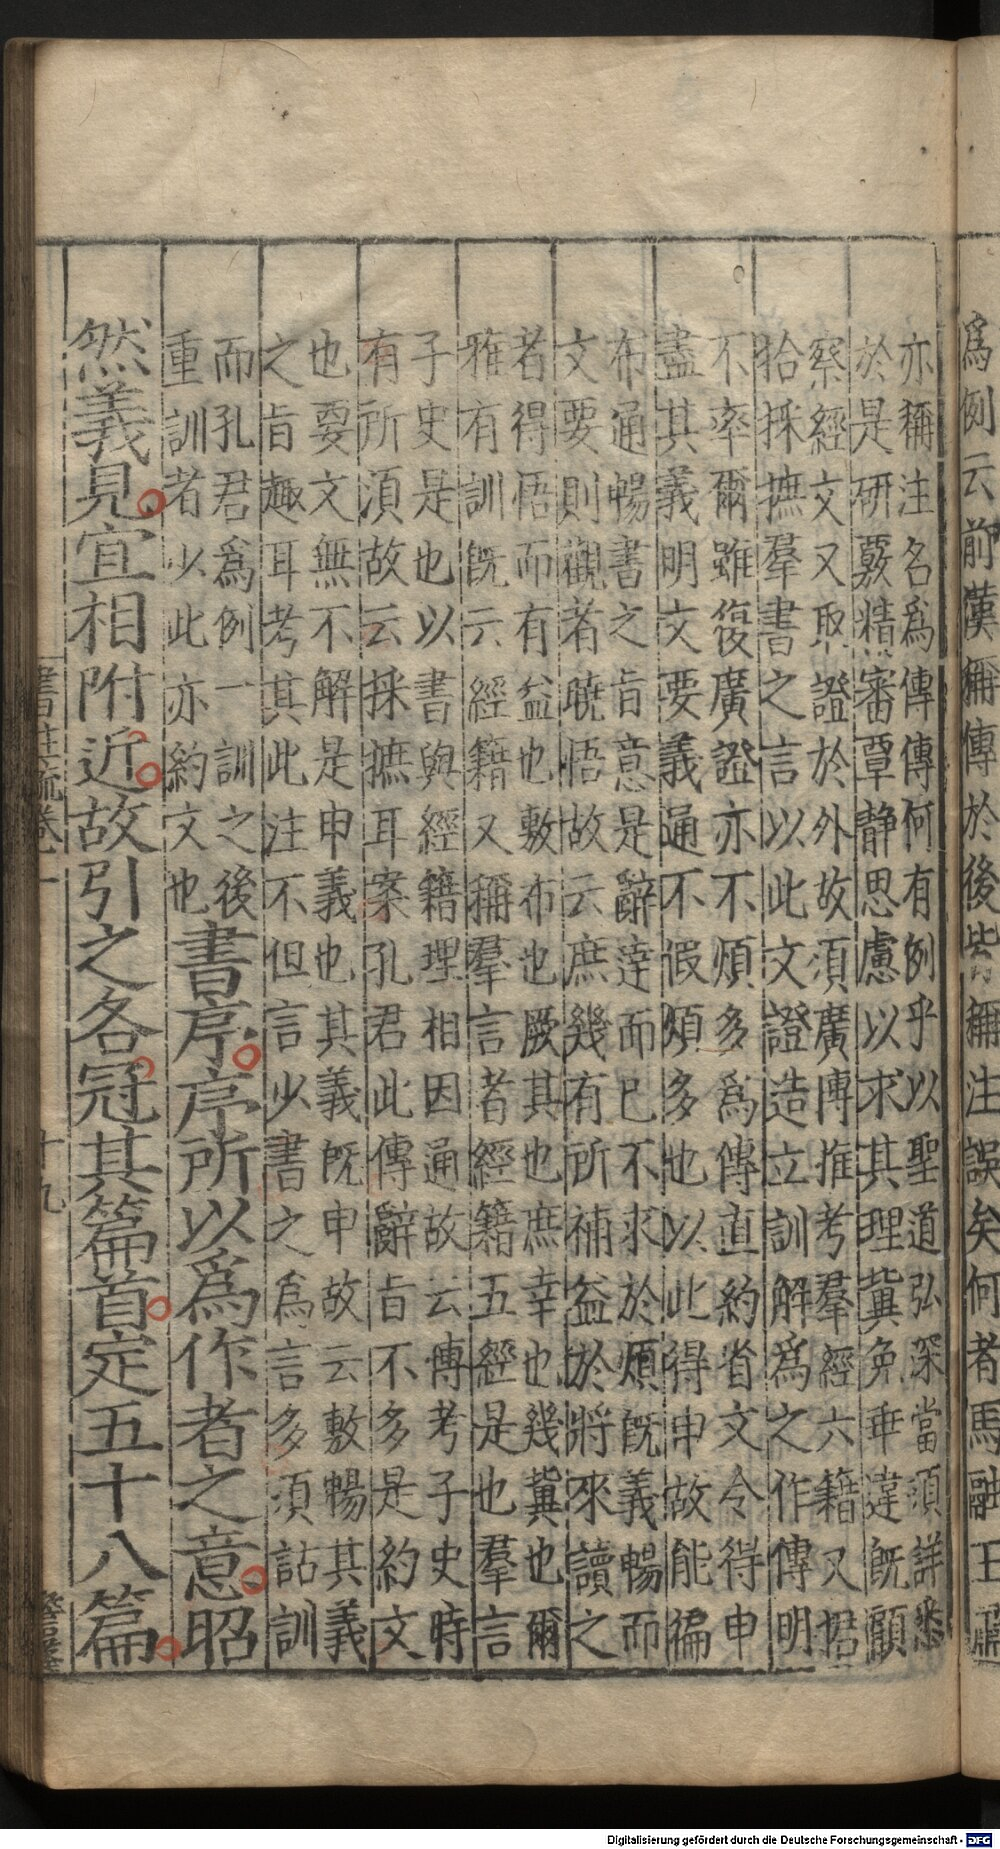 爲例云前漢稱傳於後皆稱注誤矣何者馬融王肅
亦稱注名爲傳傳何有例乎以聖道弘深當須詳悉
於是研覈精審覃靜思慮以求其理冀免乖違既顧
察經文又取證於外故須廣博推考羣經六籍又捃
拾採摭羣書之言以此文證造立訓解爲之作傳明
不率爾雖復廣證亦不煩多爲傳直約省文令得申
盡其義明文要義通不假煩多也以此得申故能徧
布通暢書之旨意是辭達而已不求於煩既義暢而
文要則觀者曉悟故云庶幾有所補益於將來讀之
者得悟而有益也敷布也厥其也庶幸也幾冀也爾
雅有訓既云經籍又稱羣言者經籍五經是也羣言
子史是也以書與經籍理相因通故云博考子史時
有所須故云採摭耳案孔君此傳辭旨不多是約文
也要文無不解是申義也其義既申故云敷暢其義
之旨趣耳考其此注不但言少書之爲言多須詁訓
而孔君爲例一訓之後
重訓者少此亦約文也
書序序所以爲作者之意昭
然義見宜相附近故引之各冠其篇首定五十八篇
書註疏卷一
十九
Digitalisierung gefördert durch die Deutsche Forschungsgemeinschaft - DFG